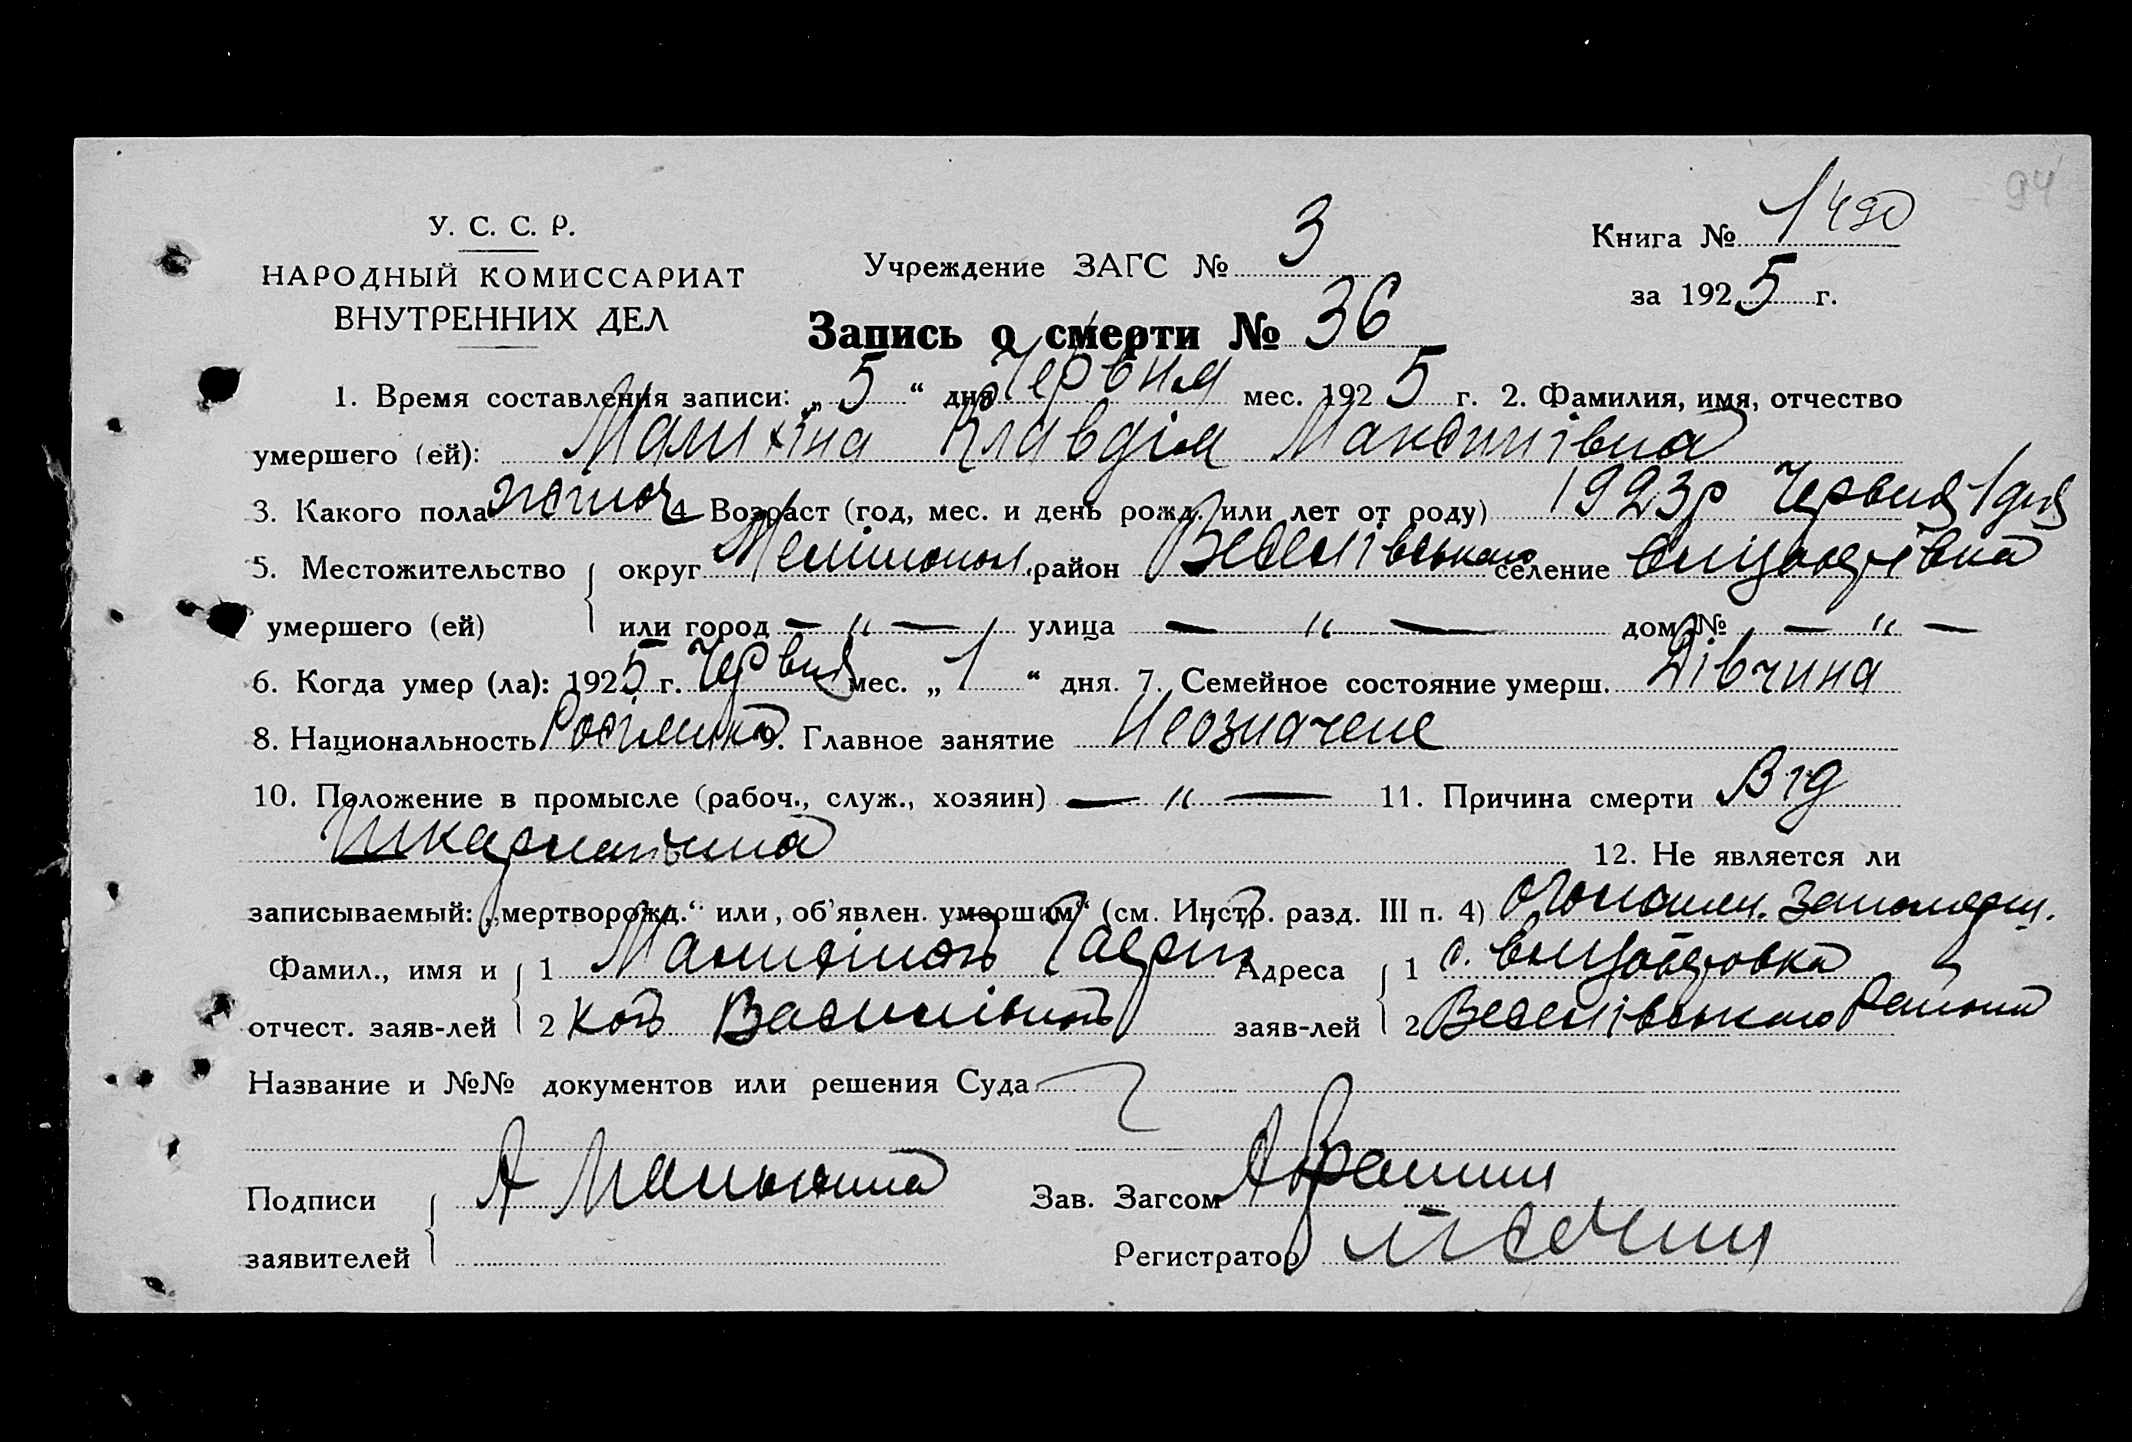 94
У. С. С. Р.
НАРОДНЫЙ КОМИССАРИАТ
ВНУТРЕННИХ ДЕЛ
Учреждение ЗАГС № 3
Книга № 1490
за 1925 г.
Запись о смерти № 36
1. Время составления записи: „5“ дня Червня мес. 1925 г. 2. Фамилия, имя, отчество
умершего (ей): Малихіна Клавдія Максимівна
3. Какого пола жіноч 4 Возраст (год, мес. и день рожд. или лет от роду) 1923р Червня 1 дня
5. Местожительство округ Мелітопол. район Веселівського селение
умершего (ей) или город — „ — улица — „ — дом № — „ —
6. Когда умер (ла): 1925 г. Червня мес. „1“ дня. 7. Семейное состояние умерш. Дівчина
8. Национальность Росіянка 9. Главное занятие Неозначене
10. Положение в промысле (рабоч., служ., хозяин) — „ — 11. Причина смерти Від
Шкарлатина 12. Не является ли
записываемый: „мертворожд.“ или „об'явлен. умершим“ (см. Инстр. разд. III п. 4)
Фамил., имя и 1 Адреса 1 с.
отчест. заяв-лей 2 Васильівною заяв-лей 2 Веселівського Району
Название и №№ документов или решения Суда
Подписи А Малыхина Зав. Загсом
заявителей Регистратор